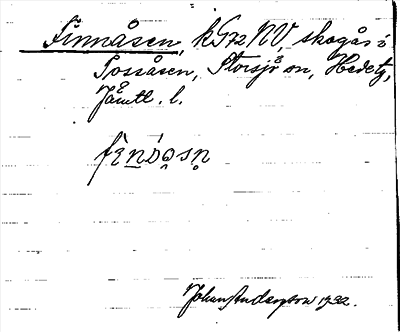 Finnåsen, kG72 NV, skogås i
Tossåsen, Storsjö sn, Hede tg,
Jämtl. l.
Johan Anderson 1932.